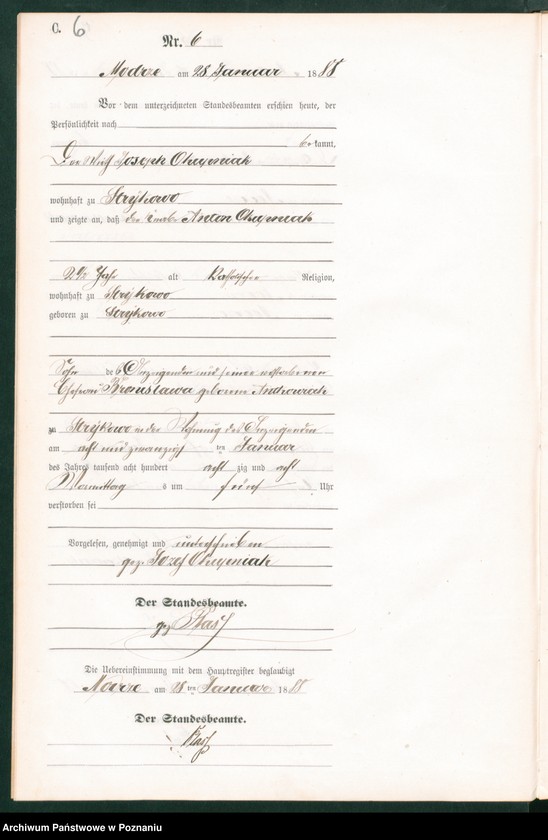 C. 6
Nr. 6
Modrze am 28 Januar 1888
Vor dem unterzeichneten Standesbeamten erschien heute, der
Persönlichkeit nach
bekannt,
Joseph
wohnhaft zu Strykowo
und zeigte an, daß der Knabe Anton
Jahr alt katholischer Religion,
wohnhaft zu Strykowo
geboren zu Strykowo
Sohn des Anzeigenden und seiner verstorbenen
Ehefrau Bronislawa geborenen
zu Strykowo in der Wohnung des Anzeigenden
am acht und zwanzig ten Januar
des Jahres tausend acht hundert acht zig und acht
Vormittag s um fünf Uhr
verstorben sei
Vorgelesen, genehmigt und unterschrieben
gez. Jozef
Der Standesbeamte.
gez
Die Uebereinstimmung mit dem Hauptregister beglaubigt
Modrze am 28 ten Januar 1888
Der Standesbeamte.
Archiwum Państwowe w Poznaniu